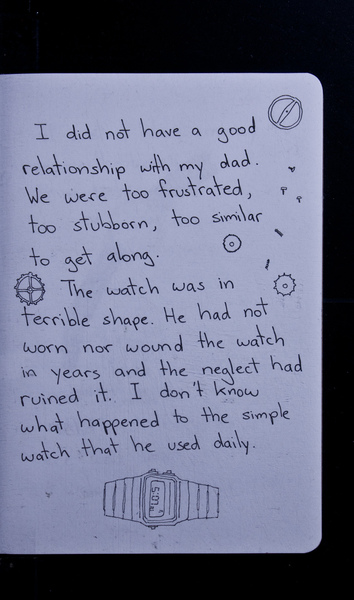 I did not have a good
relationship with my dad.
We were too frustrated,
too stubborn, too similar
to get along.
The watch was in
terrible shape. He had not
worn nor wound the watch
in years and the neglect had
ruined it. I don't know
what happened to the simple
watch that he used daily.